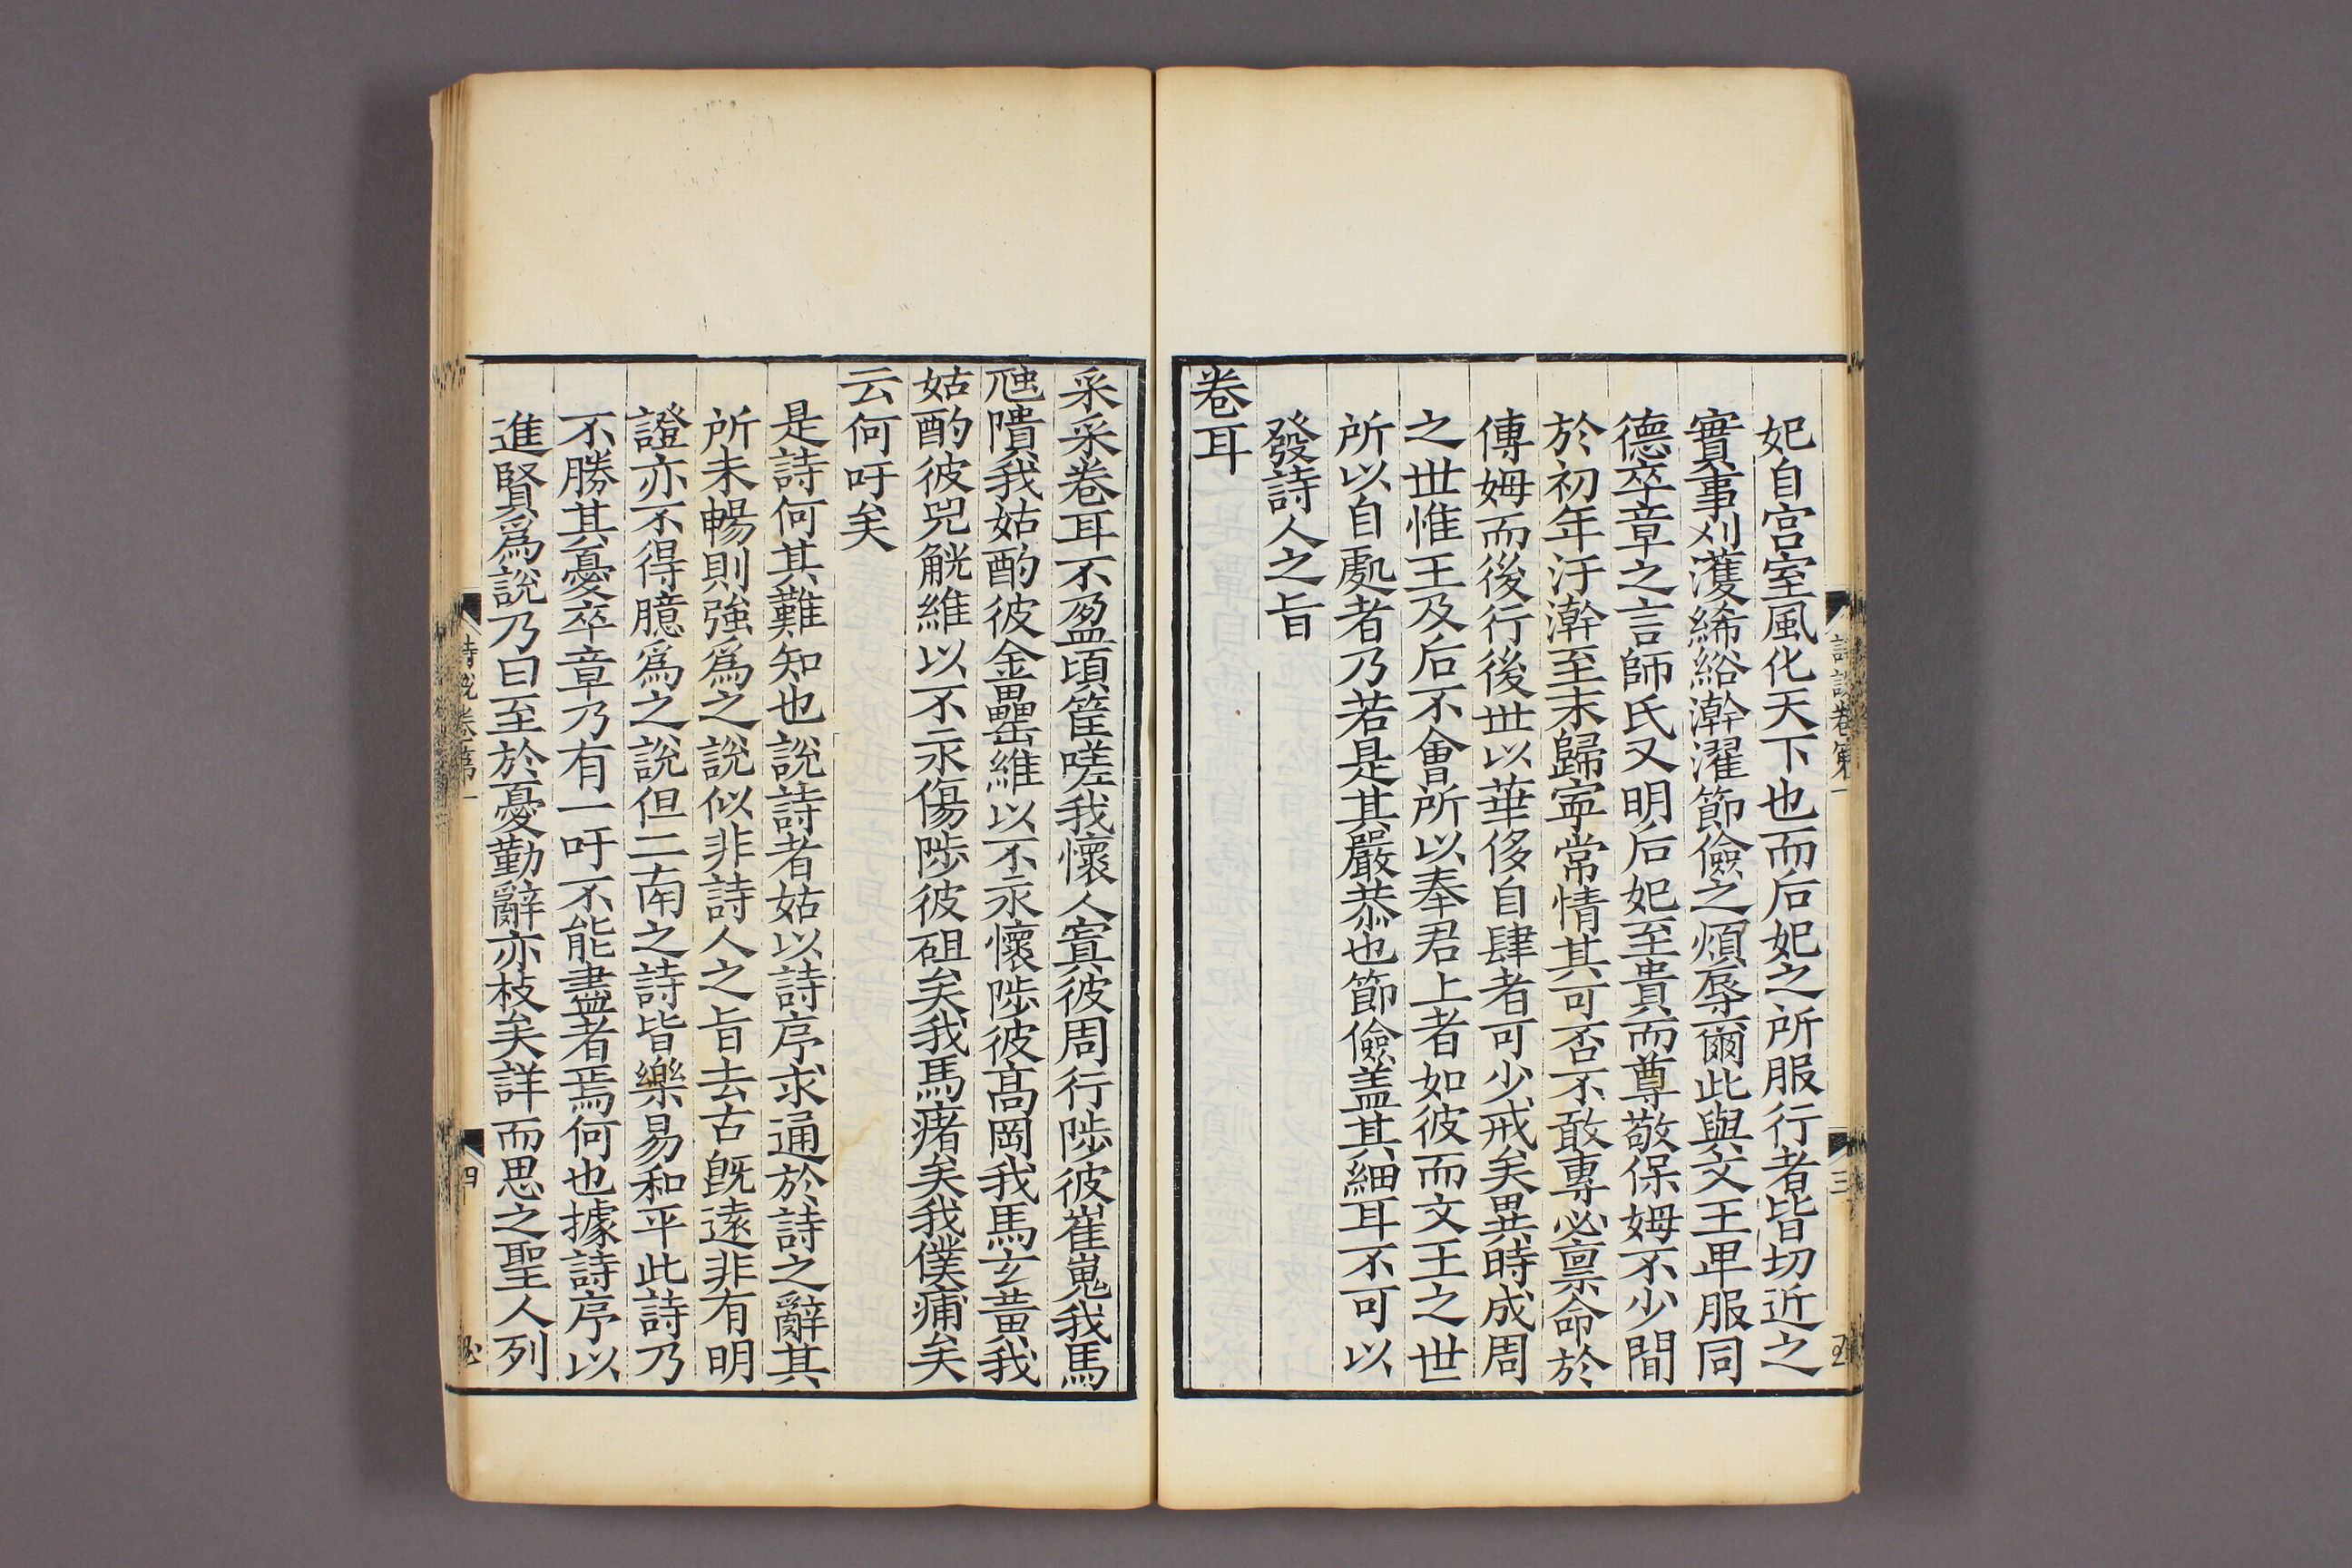 妃自宫室風化天下也而后妃之所服行者皆切近之
實事刈濩絺綌澣濯節儉之煩辱爾此與文王卑服同
德卒章之言師氏又明后妃至貴而尊敬保姆不少間
於初年汙澣至末歸寧常情其可否不敢專必禀命於
傅姆而後行後世以華侈自肆者可少戒矣異時成周
之世惟王及后不會所以奉君上者如彼而文王之世
所以自處者乃若是其嚴恭也節儉盖其細耳不可以
發詩人之旨
卷耳
采采卷耳不盈頃筐嗟我懷人寘彼周行陟彼崔嵬我馬
虺隤我姑酌彼金罍維以不永懷陟彼高岡我馬玄黃我
姑酌彼兕觥維以不永傷陟彼砠矣我馬瘏矣我僕痡矣
云何吁矣
是詩何其難知也說詩者姑以詩序求通於詩之辭其
所未暢則強爲之說似非詩人之旨去古旣遠非有明
證亦不得臆爲之說但二南之詩皆樂易和平此詩乃
不勝其憂卒章乃有一吁不能盡者焉何也據詩序以
進賢爲說乃曰至於憂勤辭亦枝矣詳而思之聖人列
詩說卷第一
三
詩說卷第一
四